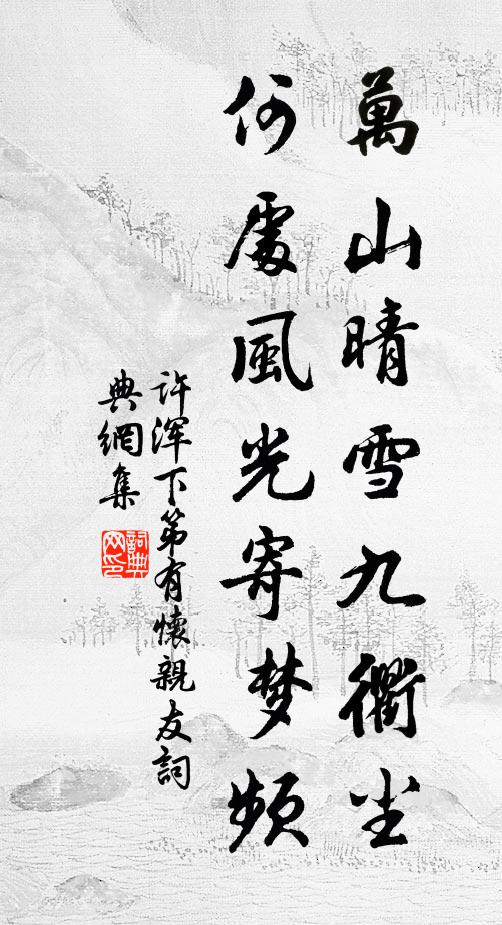 萬山晴雪九衢尘
何處風光寄梦頻
许浑下第有懷親友詞
典網集
詞典
网印